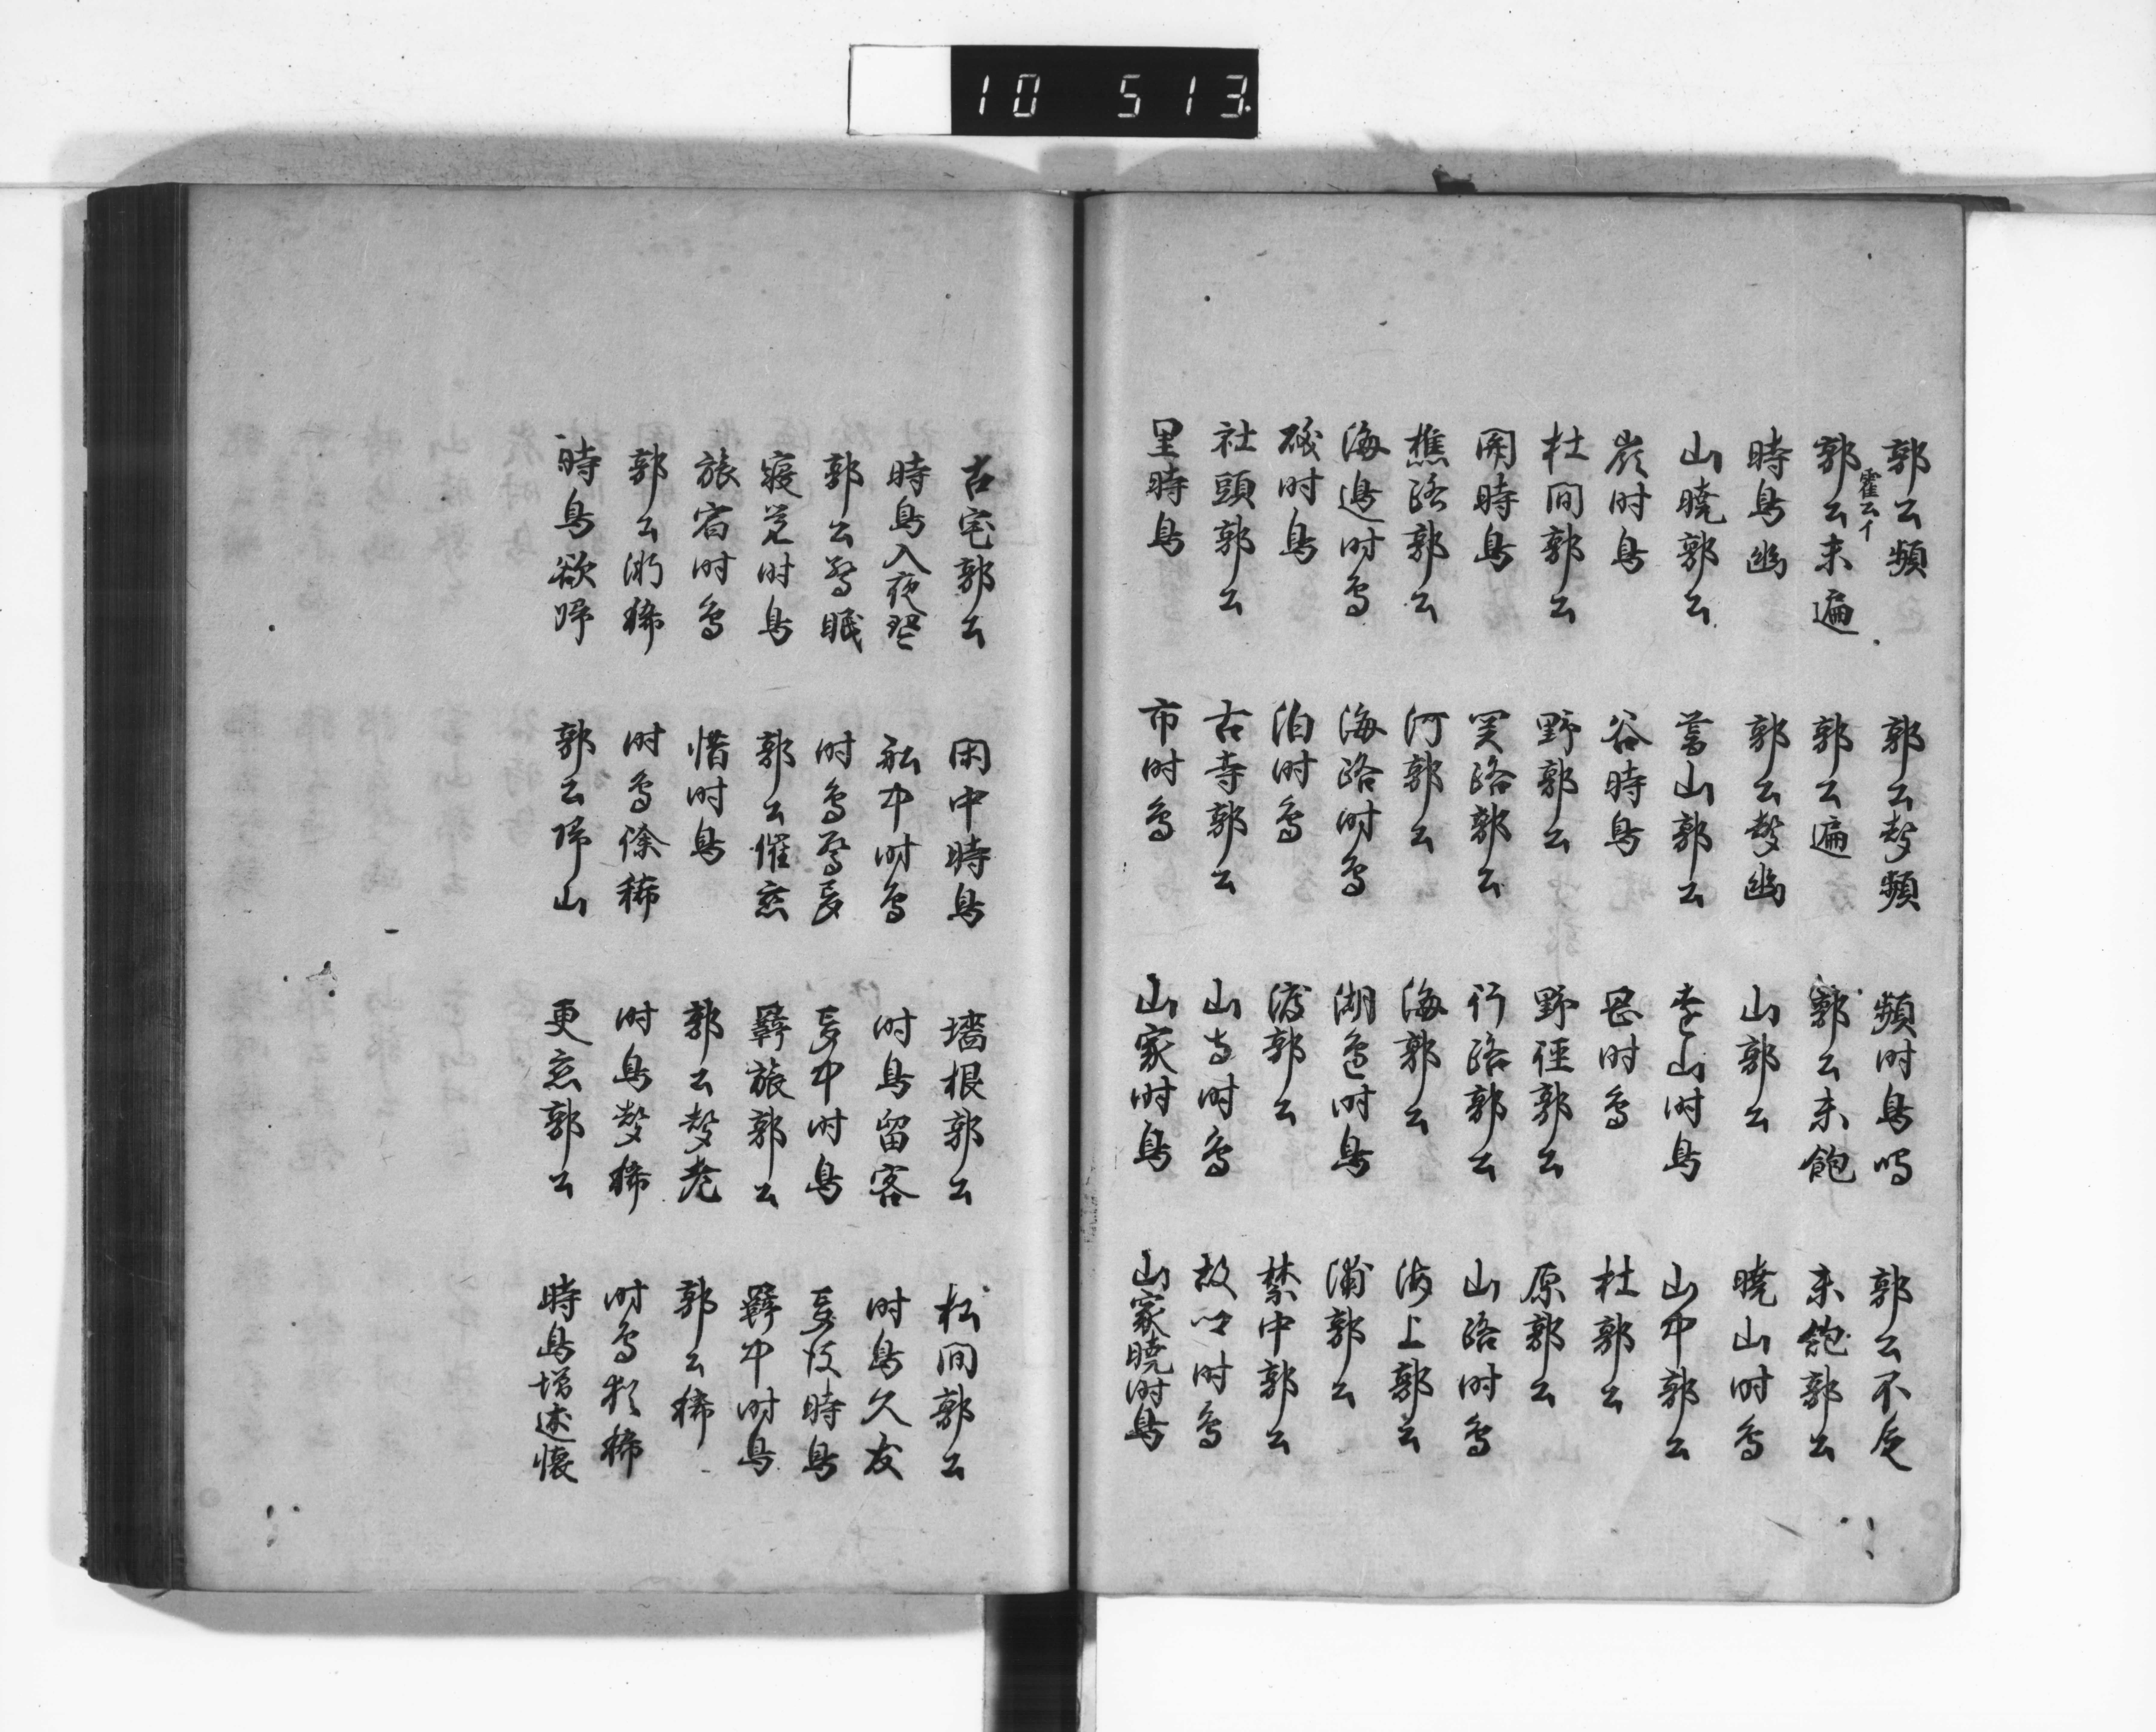 10 513.
郭公頻 郭公声頻 頻时鳥鳴 郭公不定
郭公未遍 郭公遍 郭公未飽 未飽郭公
霍公イ
時鳥幽 郭公声幽 山郭公 暁山时鳥
山暁郭公 暮山郭公 遠山时鳥 山中郭公
嶺时鳥 谷時鳥 岡时鳥 杜郭公
杜間郭公 野郭公 野径郭公 原郭公
関時鳥 関路郭公 行路郭公 山路时鳥
樵路郭公 河郭公 海郭公 海上郭公
海邊时鳥 海路时鳥 湖邊时鳥 浦郭公
磯时鳥 泊时鳥 渡郭公 禁中郭公
社頭郭公 古寺郭公 山寺时鳥 故郷时鳥
里時鳥 市时鳥 山家时鳥 山家暁时鳥
古宅郭公 閑中時鳥 墻根郭公 松間郭公
時鳥入夜琴 船中时鳥 时鳥留客 时鳥久友
郭公驚眠 时鳥驚夢 夢中时鳥 夢後時鳥
寝覚时鳥 郭公催恋 羇旅郭公 羇中时鳥
旅宿时鳥 惜时鳥 郭公声老 郭公稀
郭公漸稀 时鳥徐稀 时鳥声稀 时鳥頻稀
時鳥欲帰 郭公帰山 更恋郭公 時鳥増述懐